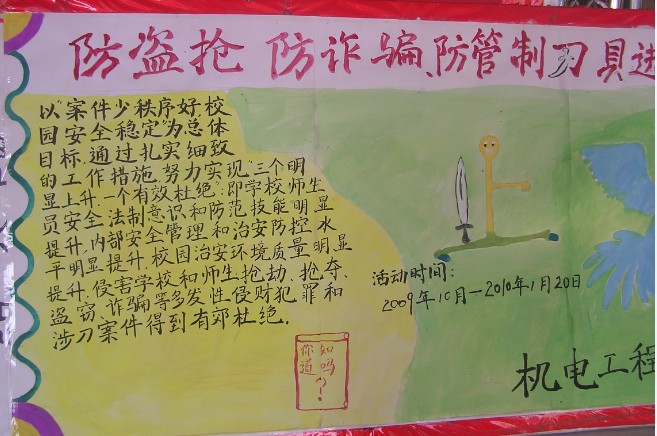 防盗抢 防诈骗、防管制刀具进
以"案件少秩序好,校
园安全稳定"为总体
目标,通过扎实细致
的工作措施,努力实现"三个明
显上升,一个有效杜绝":即学校师生
员安全法制意识和防范技能明显
提升,内部安全管理和治安防控水
平明显提升,校园治安环境质量明显
提升,侵害学校和师生抢劫、抢夺、
盗窃、诈骗等多发性侵财犯罪和
涉刀案件得到有郊杜绝.
活动时间:
2009年10月—2010年1月20日
你知
道吗
?
机电工程